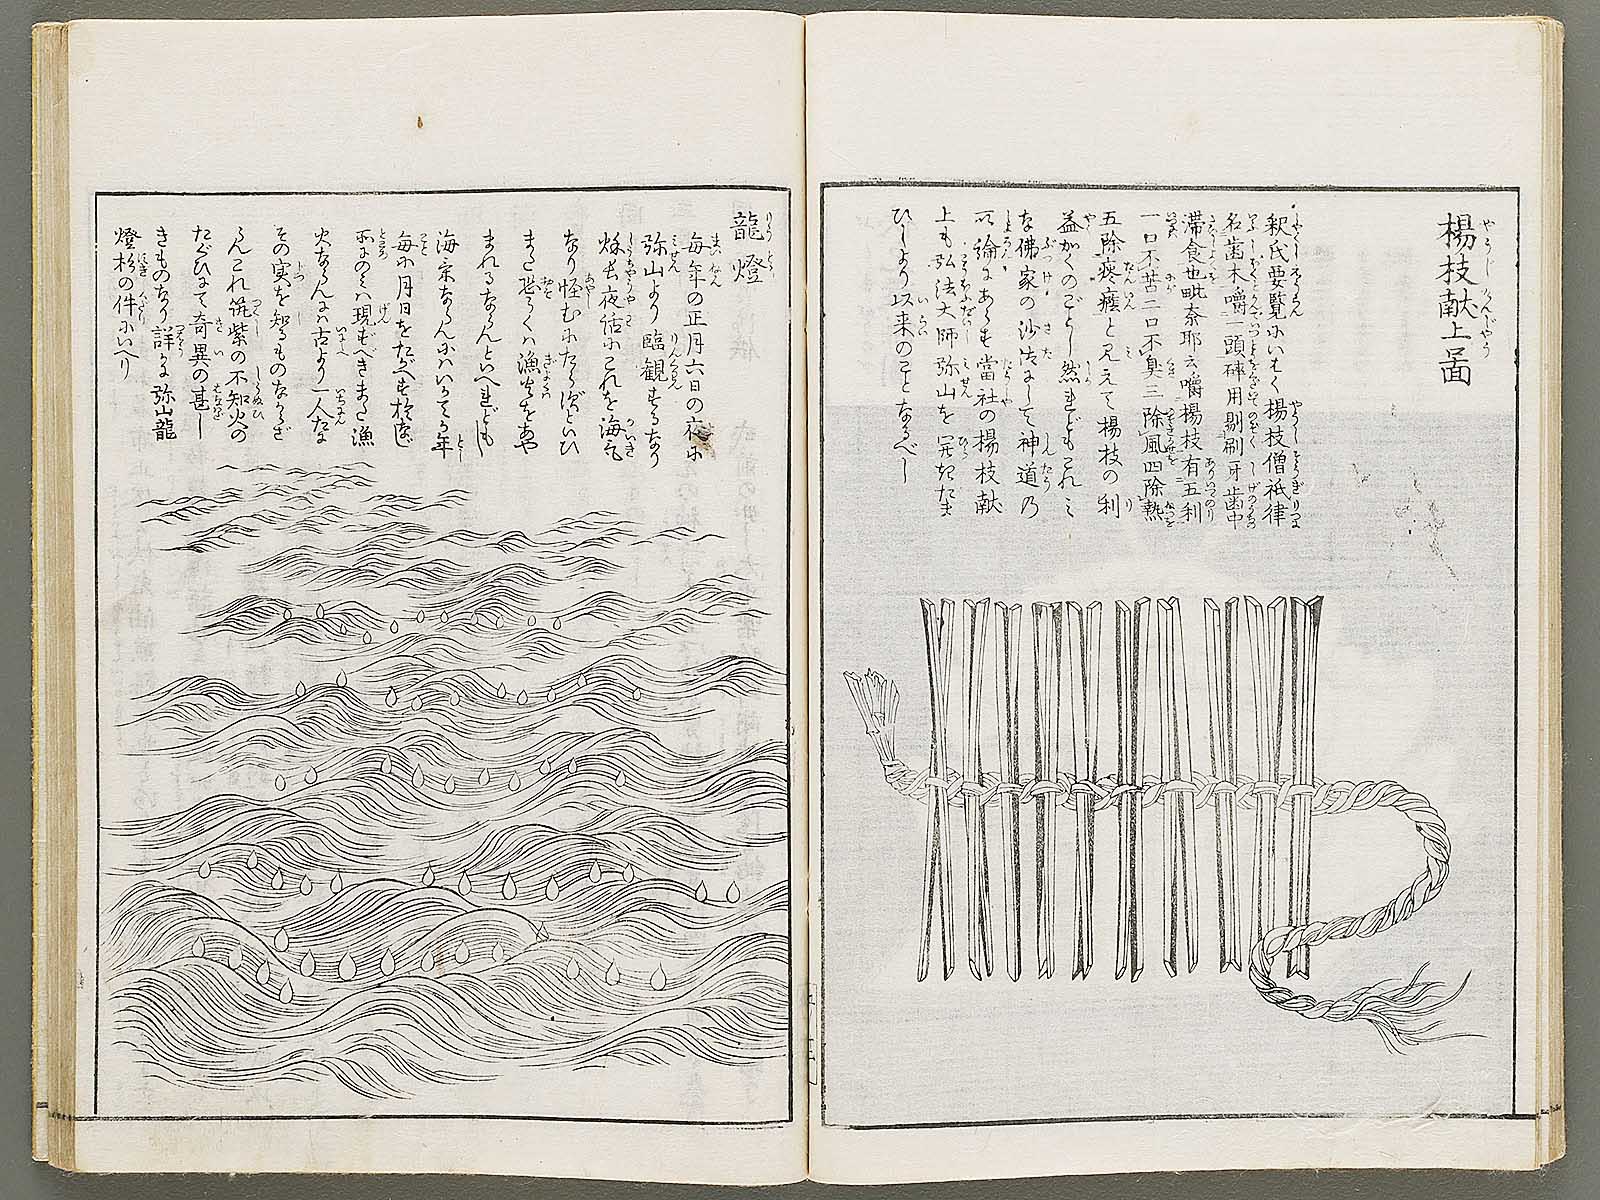 楊枝献上畧
釈氏要覧にいはく楊枝僧祇律
名歯木嚼一頭碎用剔刷牙歯中
滞食也毗奈耶云嚼楊枝有五利
一口不苦二口不臭三除風四除熱
五除痰癊と見えて楊枝の利
益かくのごとし然れどもこれミ
な佛家の沙汰にして神道乃
所論にあらず當社の楊枝献
上も弘法大師弥山を開きたま
ひしより以来のことなるべし
龍燈
毎年の正月六日の夜に
弥山より臨観するなり
除夜話にこれを海気
なり怪むにたらずといひ
また恐らくハ漁火をあや
まれるならんといへれども
海気ならんにハいかでか年
毎に月日をたがへず於て
所にのミハ現ずべきまた漁
火ならんにハ古より一人だに
その実を知るものなからざ
らんこれ筑紫の不知火の
たぐひにて奇異の甚し
きものなり詳に弥山龍
燈杉の件にいへり